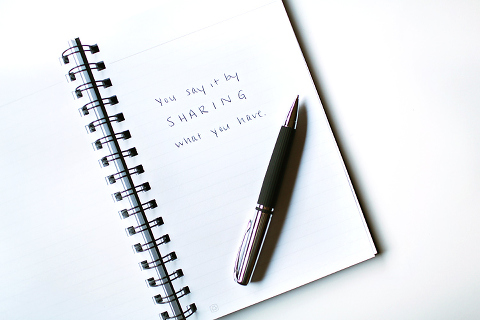 you say it by
SHARING
what you have.